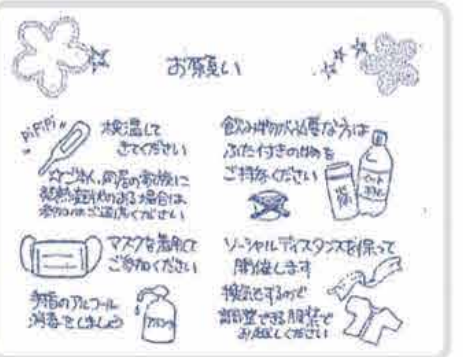 お願い
pipipi
検温して
きてください
☆ご本人、同居の家族に
発熱症状のある場合は
参加はご遠慮ください
マスクを着用して
ご参加ください
手指のアルコール
消毒をしましょう
アルコール
飲み物が必要な方は
ふた付きの物を
ご持参ください
ソーシャルディスタンスを保って
開催します
換気をするので
調整できる服装で
お越しください